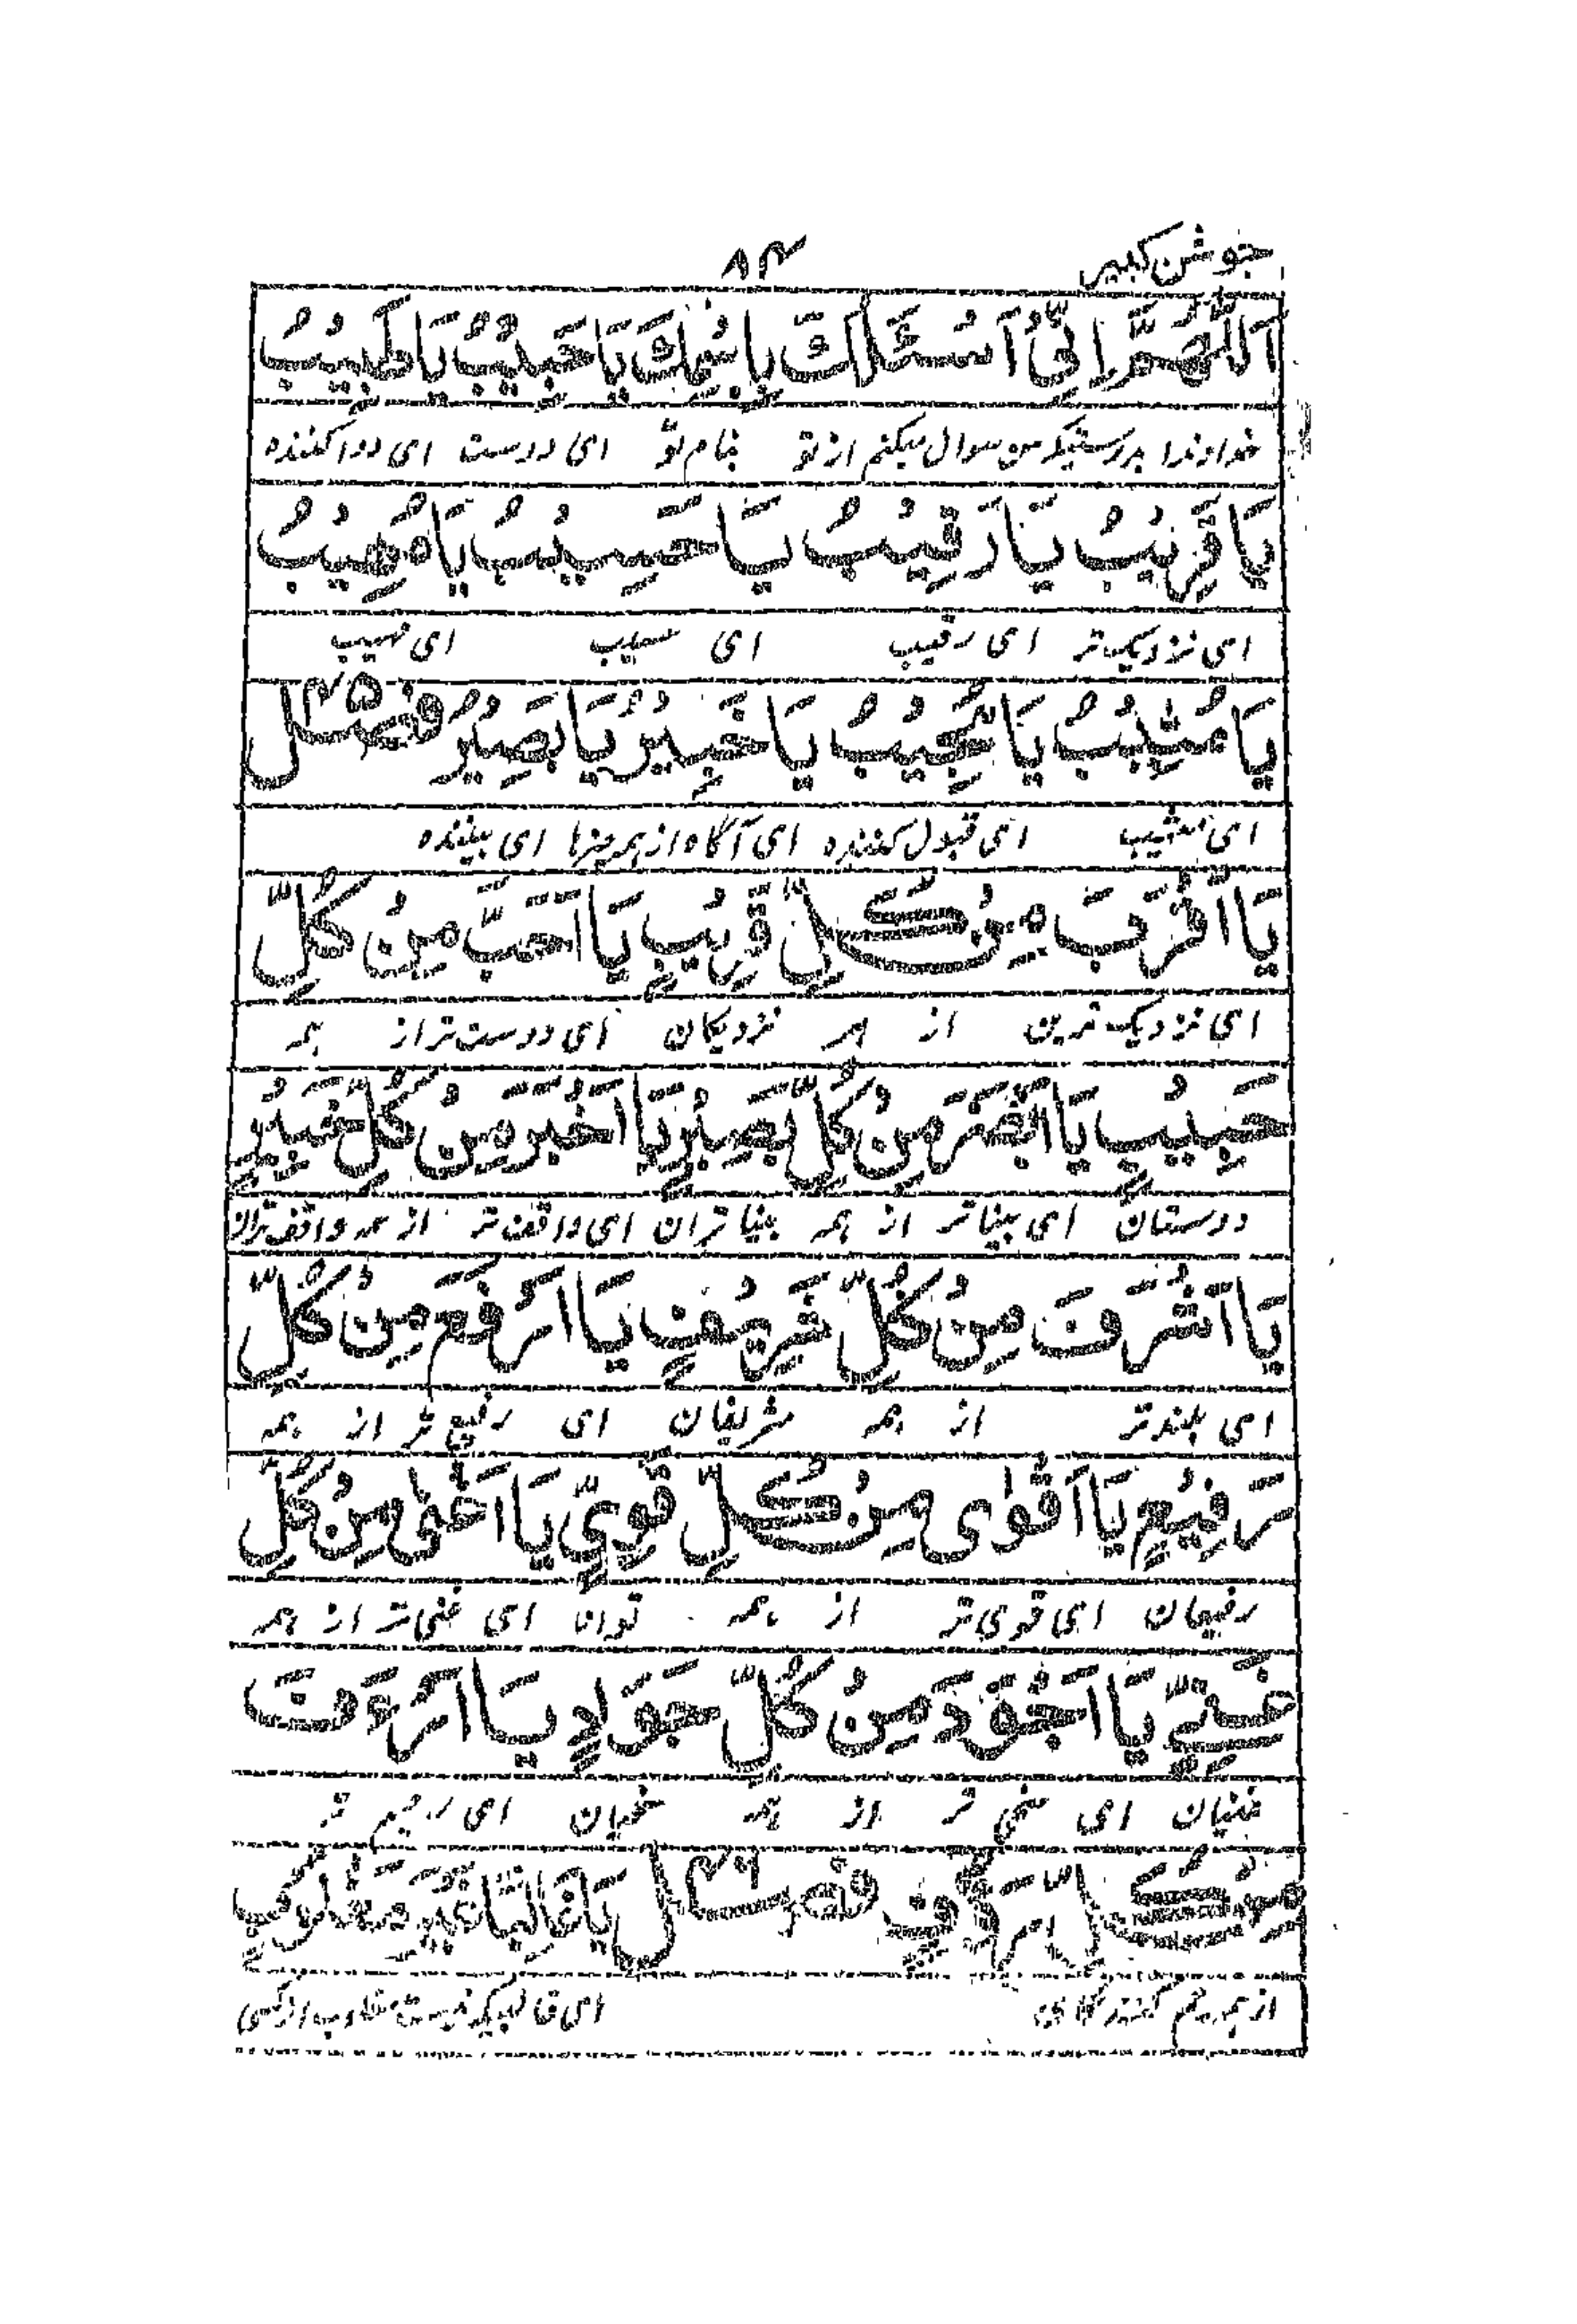 جوشن کبیر ۸۴
اَللّٰهُمَّ اِنِّیْ اَسْئَلُكَ بِاسْمِكَ یَا حَبِیْبُ یَا طَبِیْبُ
خداوندا بدرستیکه من سوال میکنم از تو بنام تو ای دوست ای دوا کننده
یَا قَرِیْبُ یَا رَقِیْبُ یَا حَسِیْبُ یَا مُهِیْبُ
ای نزدیک تر ای رقیب ای حسیب ای مهیب
یَا مُثِیْبُ یَا مُجِیْبُ یَا خَبِیْرُ یَا بَصِیْرُ فصل ۳۵
ای مثیب ای قبول کننده ای آگاه از همه چیزها ای بیننده
یَا اَقْرَبَ مِنْ كُلِّ قَرِیْبٍ یَا اَحَبَّ مِنْ كُلِّ
ای نزدیک ترین از همه نزدیکان ای دوست تر از همه
حَبِیْبٍ یَا اَبْصَرَ مِنْ كُلِّ بَصِیْرٍ یَا اَخْبَرَ مِنْ كُلِّ خَبِیْرٍ
دوستان ای بینا تر از همه بینا تران ای واقف تر از همه واقف تران
یَا اَشْرَفَ مِنْ كُلِّ شَرِیْفٍ یَا اَرْفَعَ مِنْ كُلِّ
ای بلند تر از همه شریفان ای رفیع تر از همه
رَفِیْعٍ یَا اَقْوٰی مِنْ كُلِّ قَوِیٍّ یَا اَغْنٰی مِنْ كُلِّ
رفیعان ای قوی تر از همه توانا ای غنی تر از همه
غَنِیٍّ یَا اَجْوَدَ مِنْ كُلِّ جَوَادٍ یَا اَرْءَفَ
غنیان ای سخی تر از همه سخیان ای رحیم تر
مِنْ كُلِّ رَؤُفٍ فصل ۳۶ یَا غَالِبًا غَیْرَ مَغْلُوْبٍ
از همه رحم ای